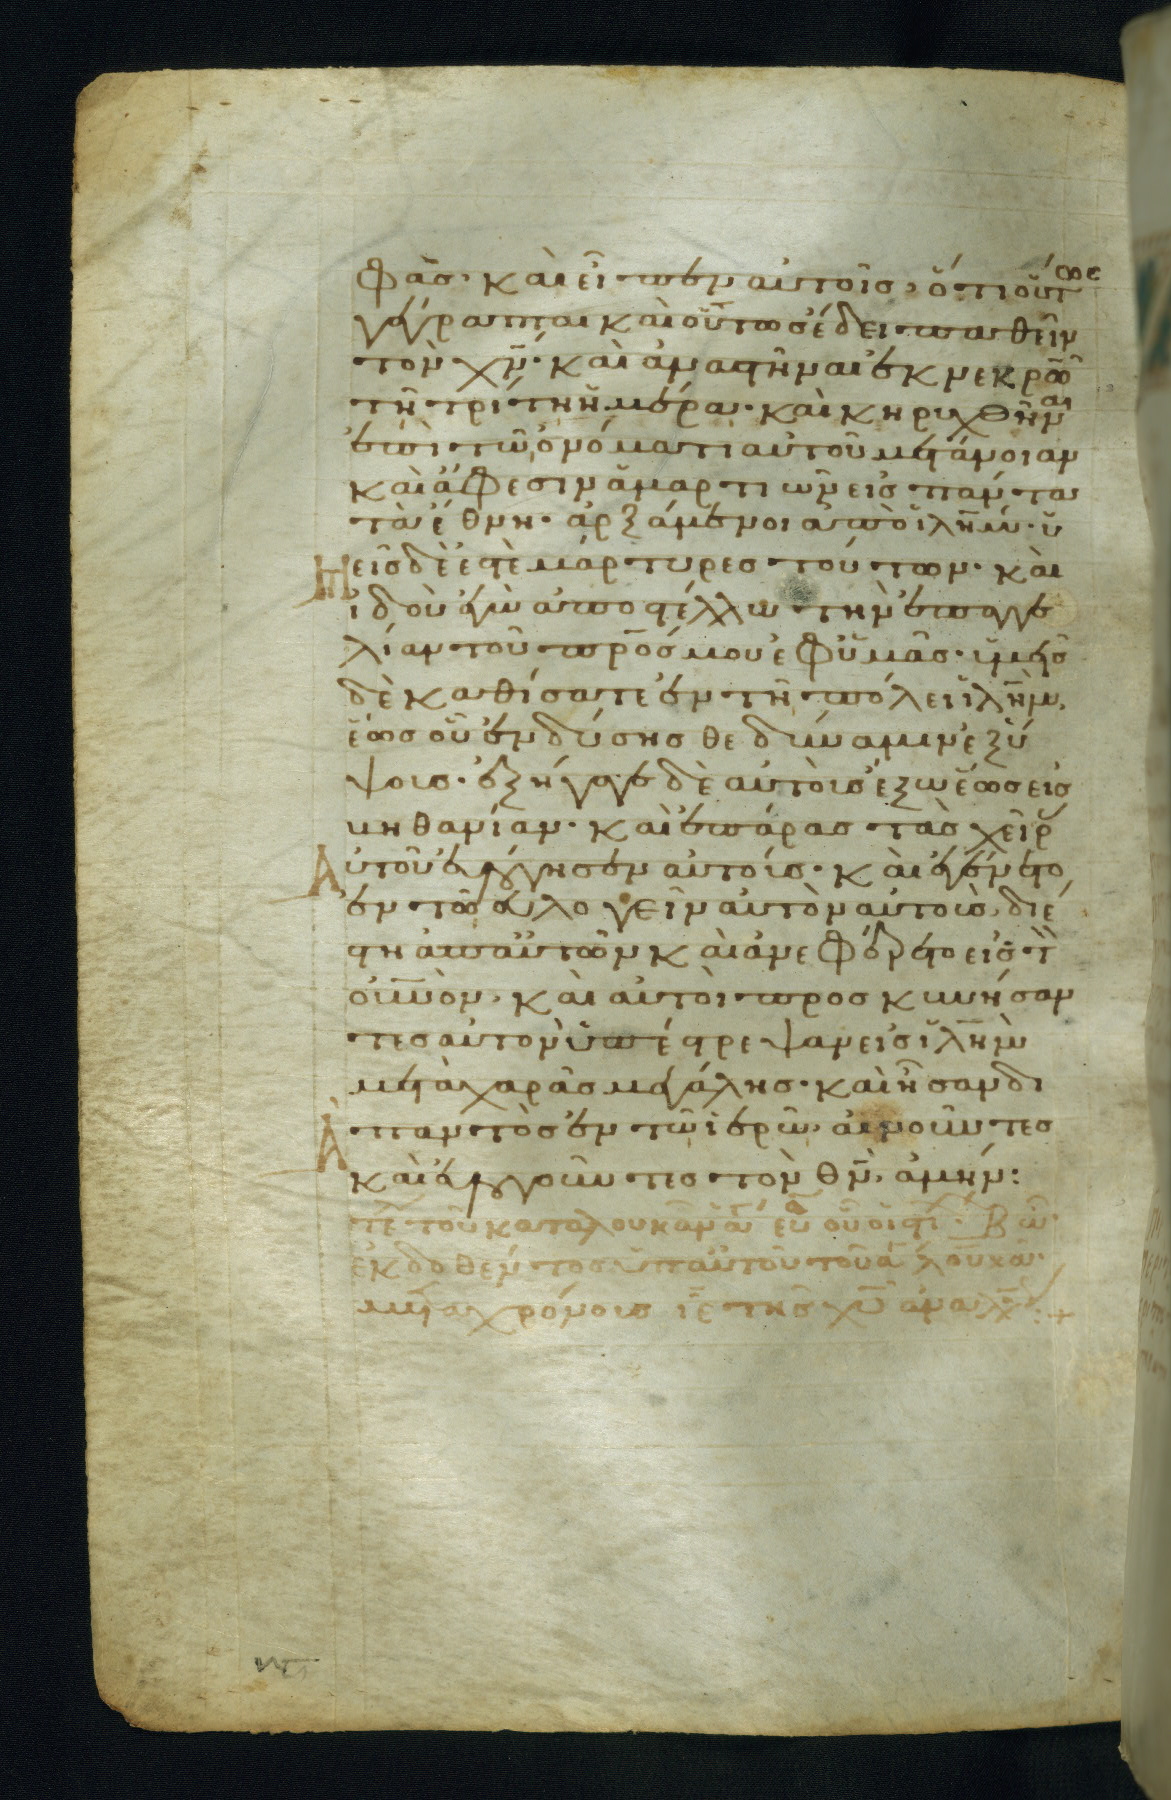 φὰσ· καὶ εἶπεν αὐτοῖσ, ὅτι οὕτωσ
γέγραπται καὶ οὕτωσ ἔδει παθεῖν
τὸν χν̄· καὶ ἀναστῆναι ἐκ νεκρῶ
τῆ τρίτη ἡμέρα· καὶ κηρυχθῆναι
ἐπὶ τῶ ὀνόματι αὐτοῦ μετάνοιαν
καὶ ἄφεσιν ἁμαρτιῶν εἰσ πάντα
τὰ ἔθνη· ἀρξάμενοι ἀπὸ ἰλη̄μ· ὑ
Μεῖσ δέ ἐστε μάρτυρεσ τούτων· καὶ
ἰδοὺ ἐγὼ ἀποστέλλω τὴν ἐπαγγε
λίαν τοῦ πρ̄οσ μου ἐφ ὑμᾶσ· ὑμεῖσ
δὲ καθίσατε ἐν τῆ πόλει ἰλη̄μ,
ἕωσ οὗ ἐνδύσησθε δύναμιν ἐξ ὕ
ψουσ· ἐξήγαγε δὲ αὐτοὺσ ἔξω ἕωσ εἰσ
βηθανίαν· καὶ ἐπάρασ τὰσ χεῖρ
Αὑτοῦ εὐλόγησεν αὐτούσ· καὶ ἐγένετο
ἐν τῶ εὐλογεῖν αὐτὸν αὐτοὺσ, διέ
στη ἀπ αὐτῶν καὶ ἀνεφέρετο εἰσ τ
οὐν̄ον, καὶ αὐτοὶ προσκυνήσαν
τεσ αὐτὸν ὑπέστρεψαν εἰσ ἰλη̄μ
μετὰ χαρᾶσ μεγάλησ· καὶ ἦσαν δι
Απαντὸσ ἐν τῶ ἱερῶ, αἰνοῦντεσ
καὶ εὐλογοῦντεσ τὸν θν̄, ἀμήν:
τε τοῦ κατα λουκᾶν ευ οὗ οἱ στι· ͵βω·
ἐκδοθέντοσ ὑπ αὐτοῦ τοῦ λουκᾶ·
μετα χρόνουσ ιε τῆσ χυ ἀναλ: +